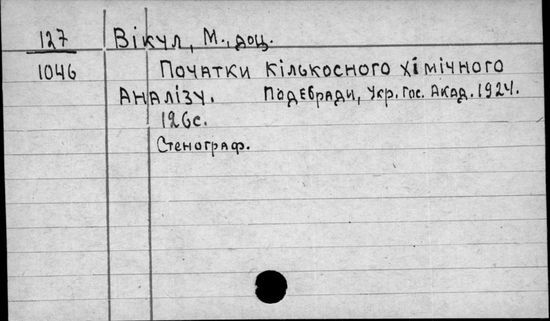 127 Вікул, М., доц.
1046 Початки кількосного хімічного
аналізу. Подєбради, Укр. Гос. Акад. 1924.
126с.
Стенограф.